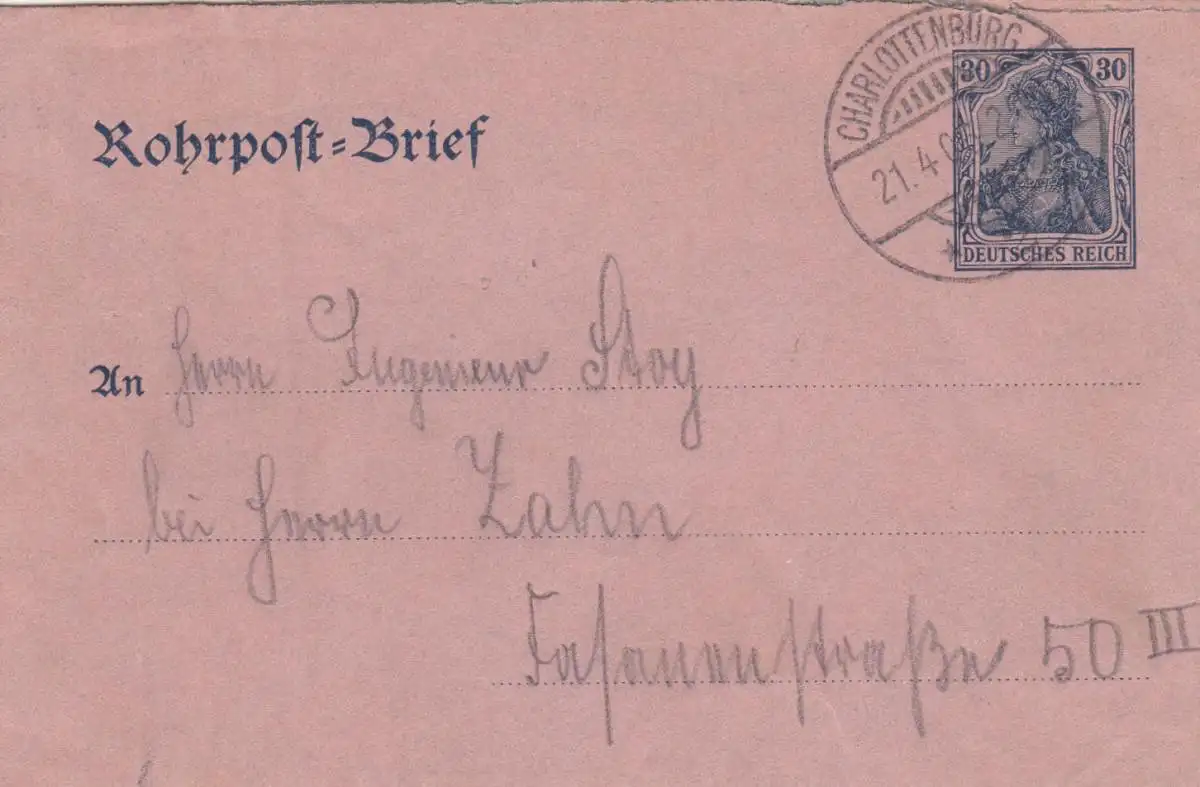 CHARLOTTENBURG
30 30
21.4.0
DEUTSCHES REICH
Rohrpost=Brief
An Herrn Ingenieur Stoy
bei Herrn Zahn
Fasanenstraße 50 III